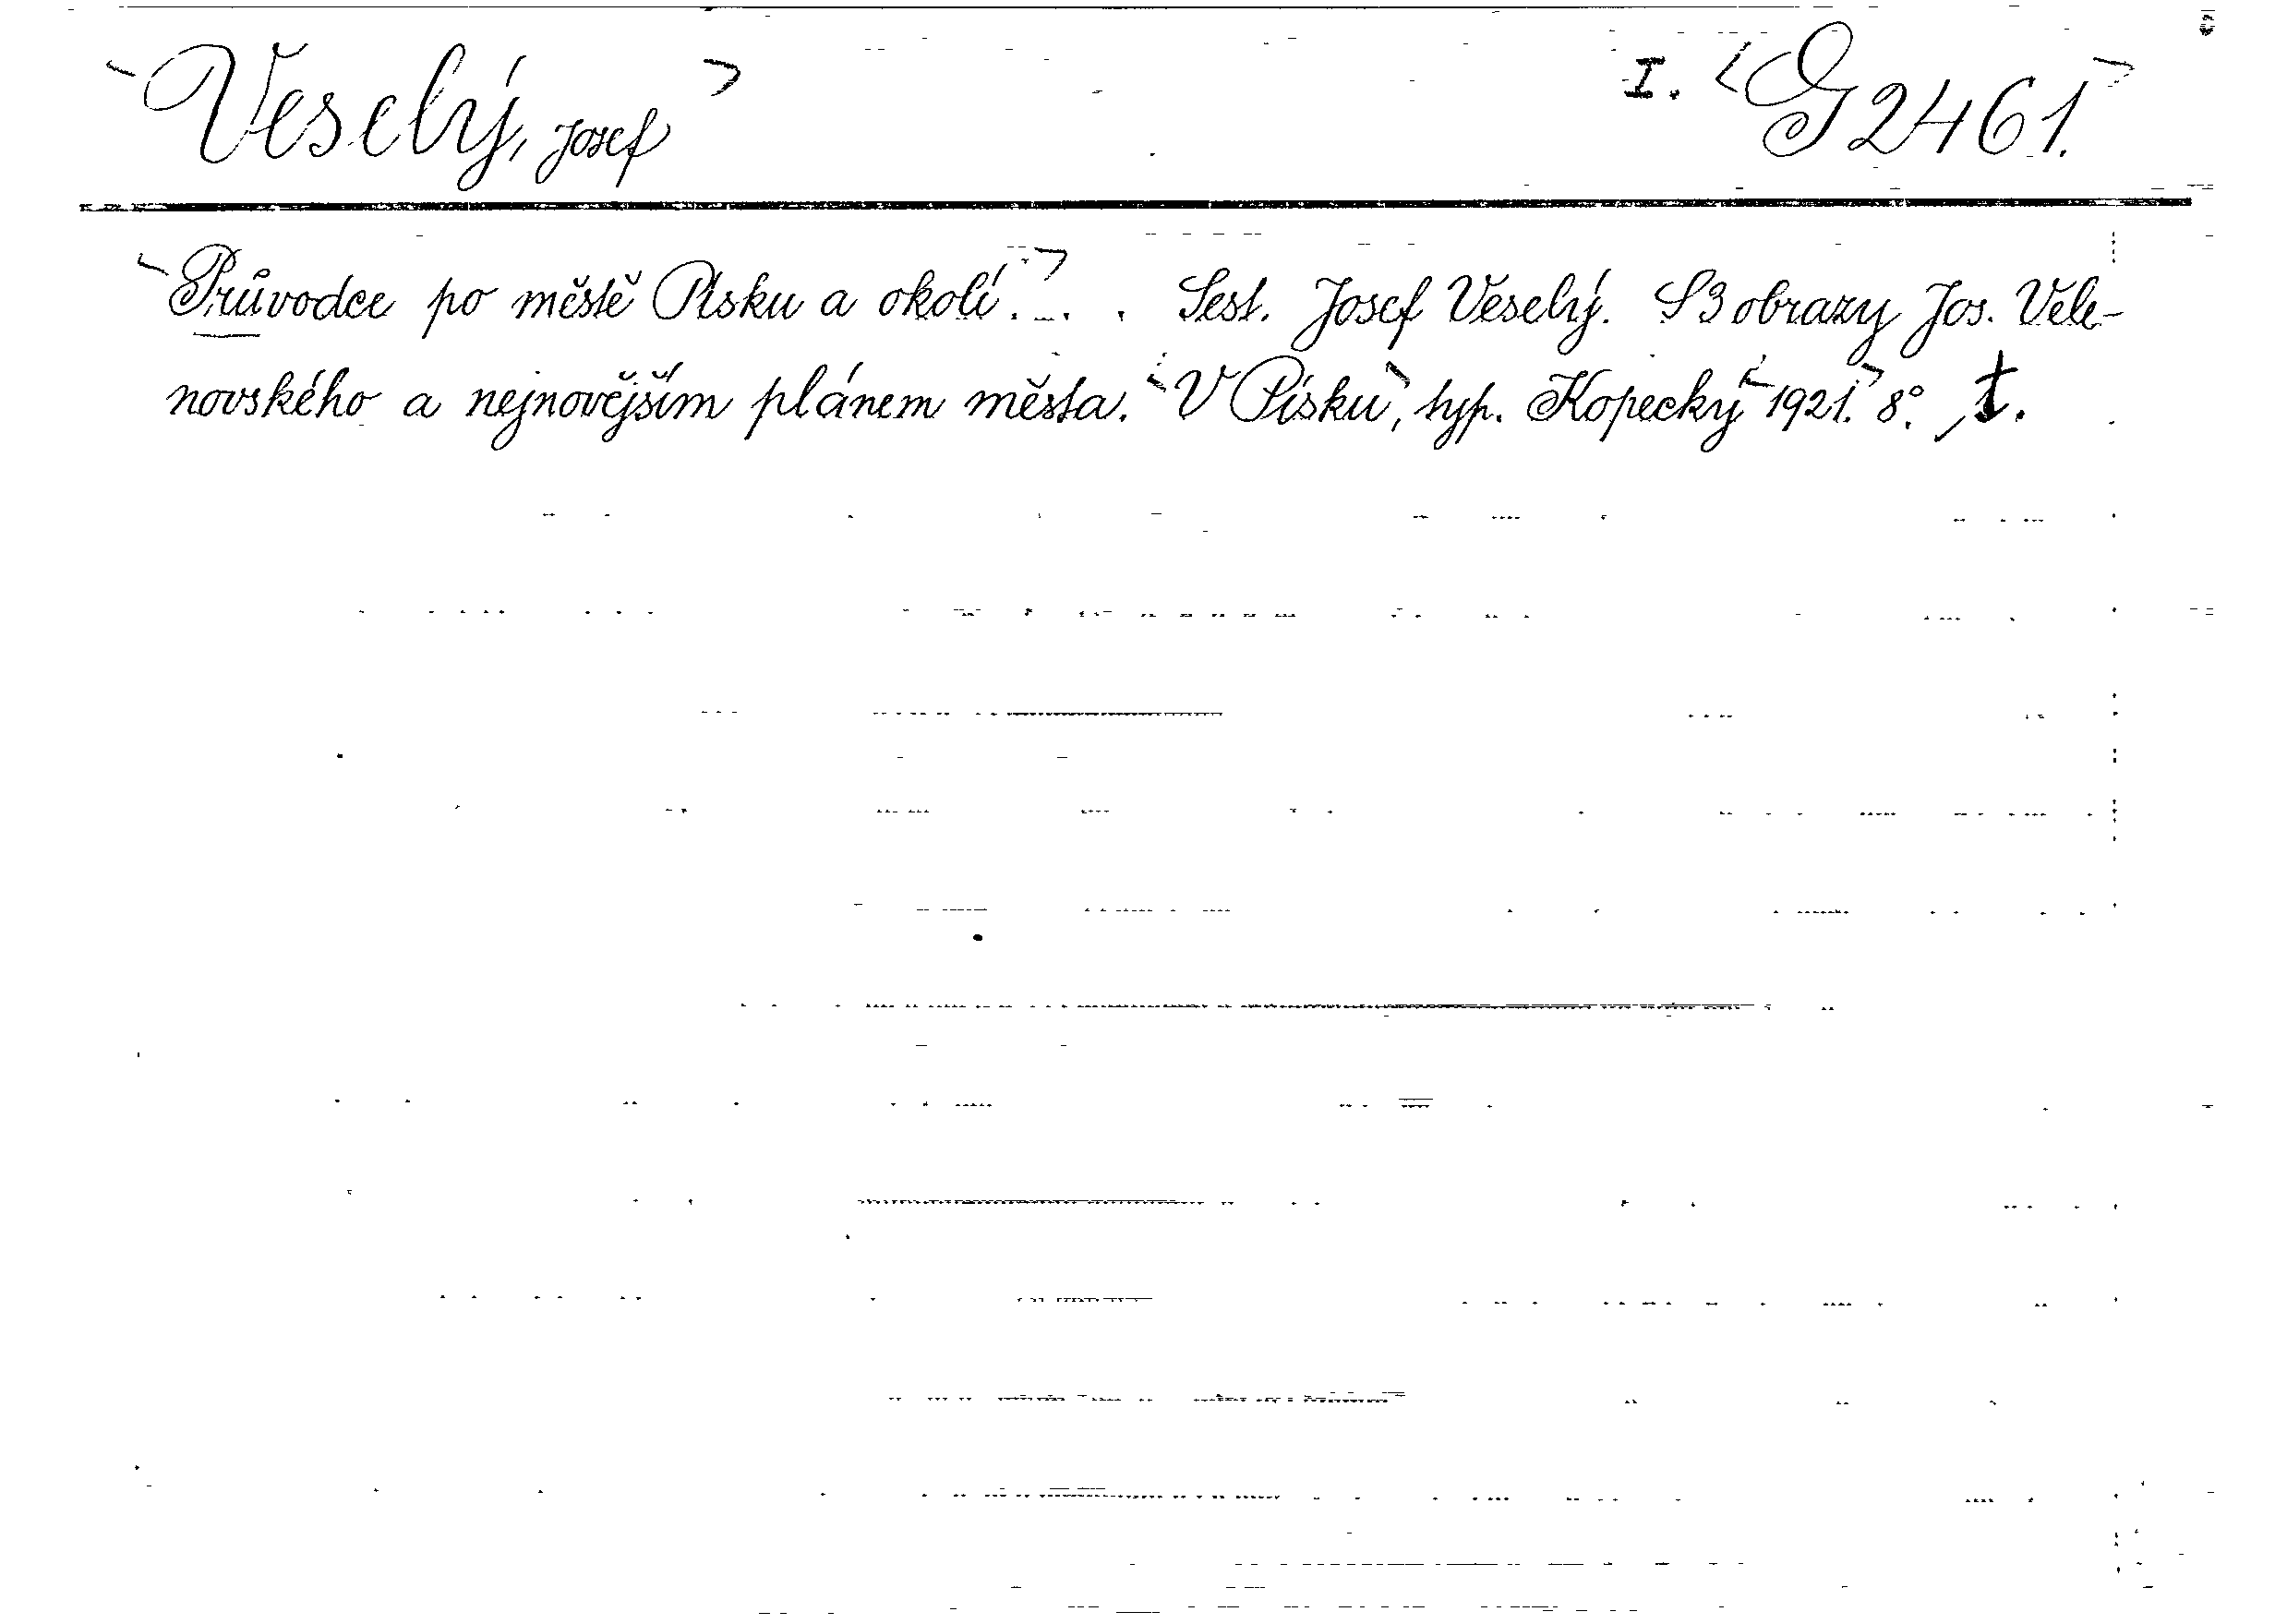 Veselý, Josef
I. G 2461.
Průvodce po městě Písku a okolí. . . Sest. Josef Veselý. S 3 obrazy Jos. Vele-
novského a nejnovějším plánem města. V Písku, typ. Kopecký 1921. 8°. t.